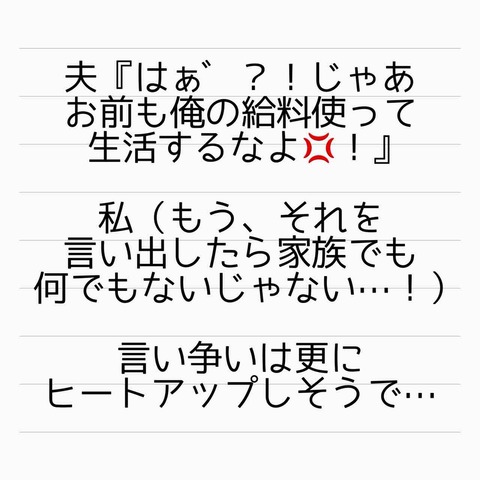 夫『はぁ゛？！じゃあ
お前も俺の給料使って
生活するなよ💢！』
私（もう、それを
言い出したら家族でも
何でもないじゃない…！）
言い争いは更に
ヒートアップしそうで…